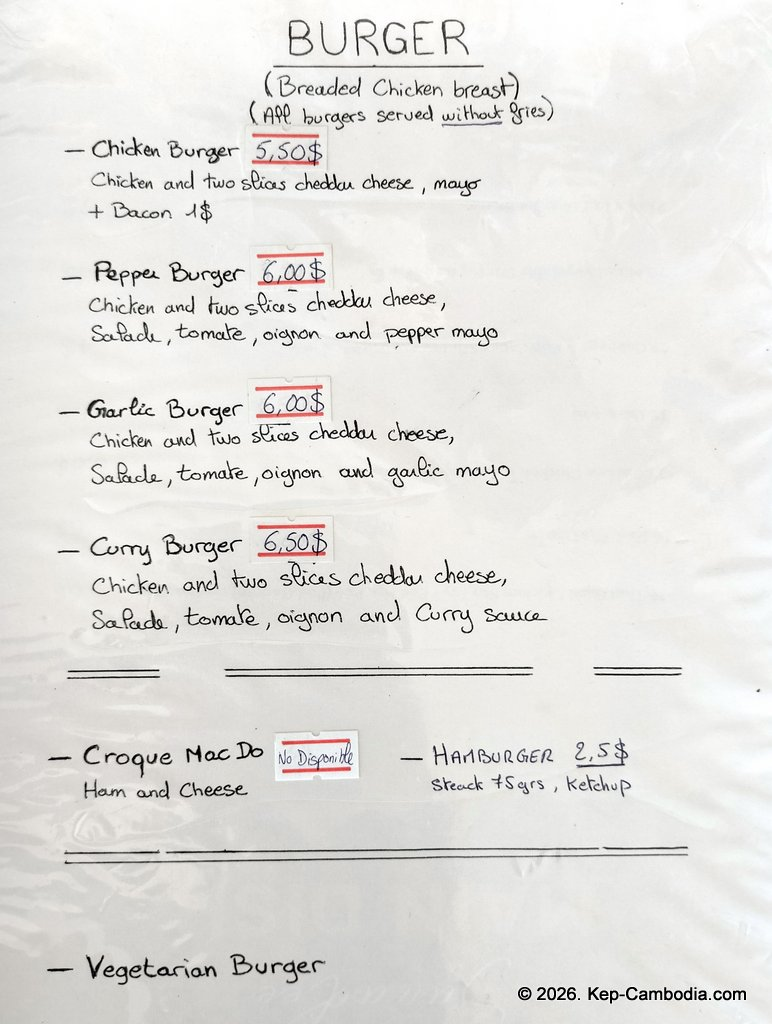 BURGER
(Breaded Chicken breast)
(All burgers served without fries)
– Chicken Burger 5,50$
Chicken and two slices cheddar cheese, mayo
+ Bacon 1$
– Pepper Burger 6,00$
Chicken and two slices cheddar cheese,
Salade, tomate, oignon and pepper mayo
– Garlic Burger 6,00$
Chicken and two slices cheddar cheese,
Salade, tomate, oignon and garlic mayo
– Curry Burger 6,50$
Chicken and two slices cheddar cheese,
Salade, tomate, oignon and Curry sauce
– Croque Mac Do No Disponible
Ham and Cheese
– HAMBURGER 2,5$
Steack 75grs, Ketchup
– Vegetarian Burger
© 2026. Kep-Cambodia.com